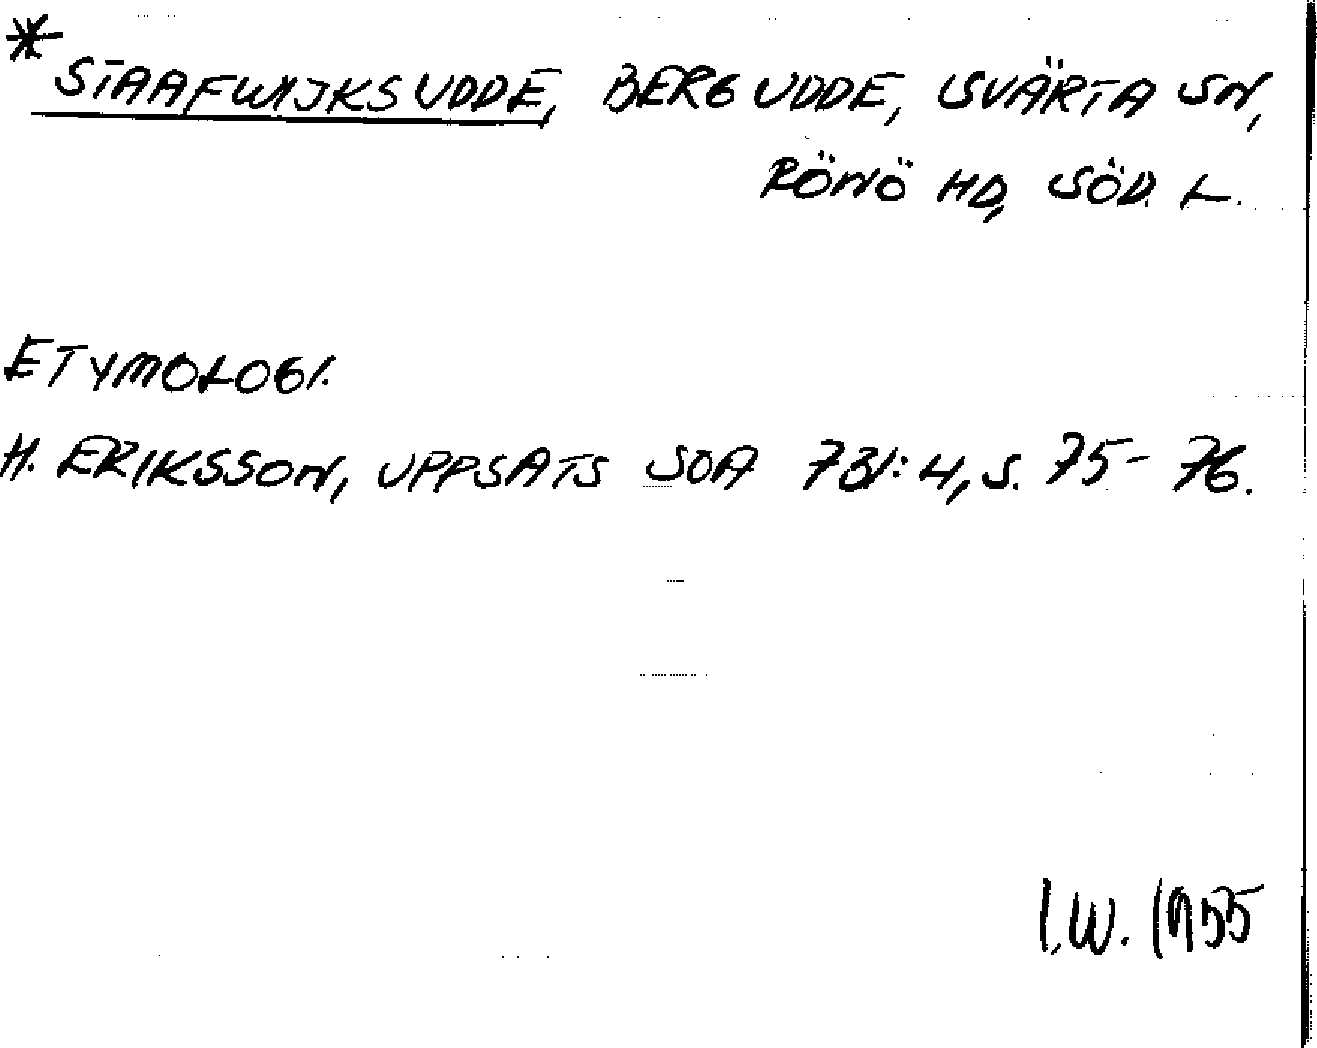 * STAAFWIJKSUDDE, BERGUDDE, SVÄRTA SN,
RÖNÖ HD, SÖD. L.
ETYMOLOGI.
H. ERIKSSON, UPPSATS SOA 731:4, S. 75-76.
I.W. 1955